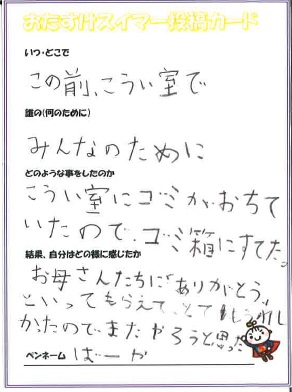 おたすけスイマー投稿カード
いつ・どこで
この前、こうい室で
誰の(何のために)
みんなのために
どのような事をしたのか
こうい室にゴミがおちて
いたので、ゴミ箱にすてた。
結果、自分はどの様に感じたか
お母さんたちに"ありがとう"
といってもらえて、とてもうれし
かったのでまたやろうと思った
ペンネーム ばーか